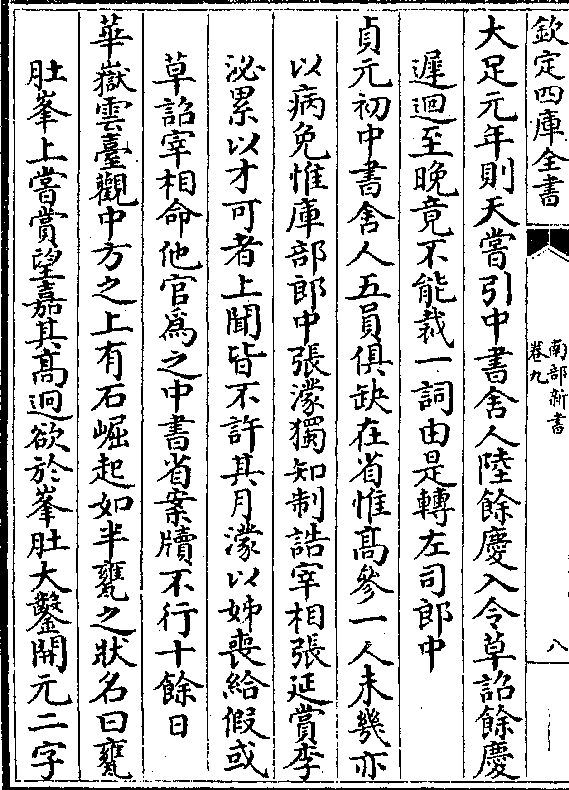 欽定四庫全書
南部新書
卷九
八
大足元年則天嘗引中書舍人陸餘慶入令草詔餘慶
遲迴至晚竟不能裁一詞由是轉左司郎中
貞元初中書舍人五員俱缺在省惟髙參一人未幾亦
以病免惟庫部郎中張濛獨知制誥宰相張延賞李
泌累以才可者上聞皆不許其月濛以姊喪給假或
草詔宰相命他官爲之中書省案牘不行十餘日
華嶽雲臺觀中方之上有石崛起如半甕之狀名曰甕
肚峯上嘗賞望嘉其髙迥欲於峯肚大鑿開元二字